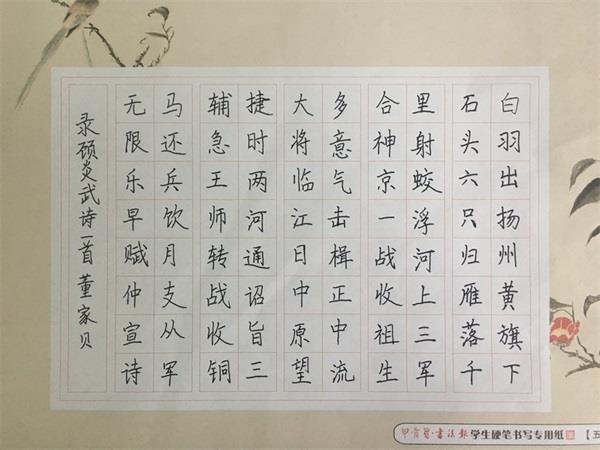 白羽出扬州黄旗下
石头六只归雁落千
里射蛟浮河上三军
合神京一战收祖生
多意气击楫正中流
大将临江日中原望
捷时两河通诏旨三
辅急王师转战收铜
马还兵饮月支从军
无限乐早赋仲宣诗
录顾炎武诗一首 董家贝
书法报 学生硬笔书写专用纸 【五